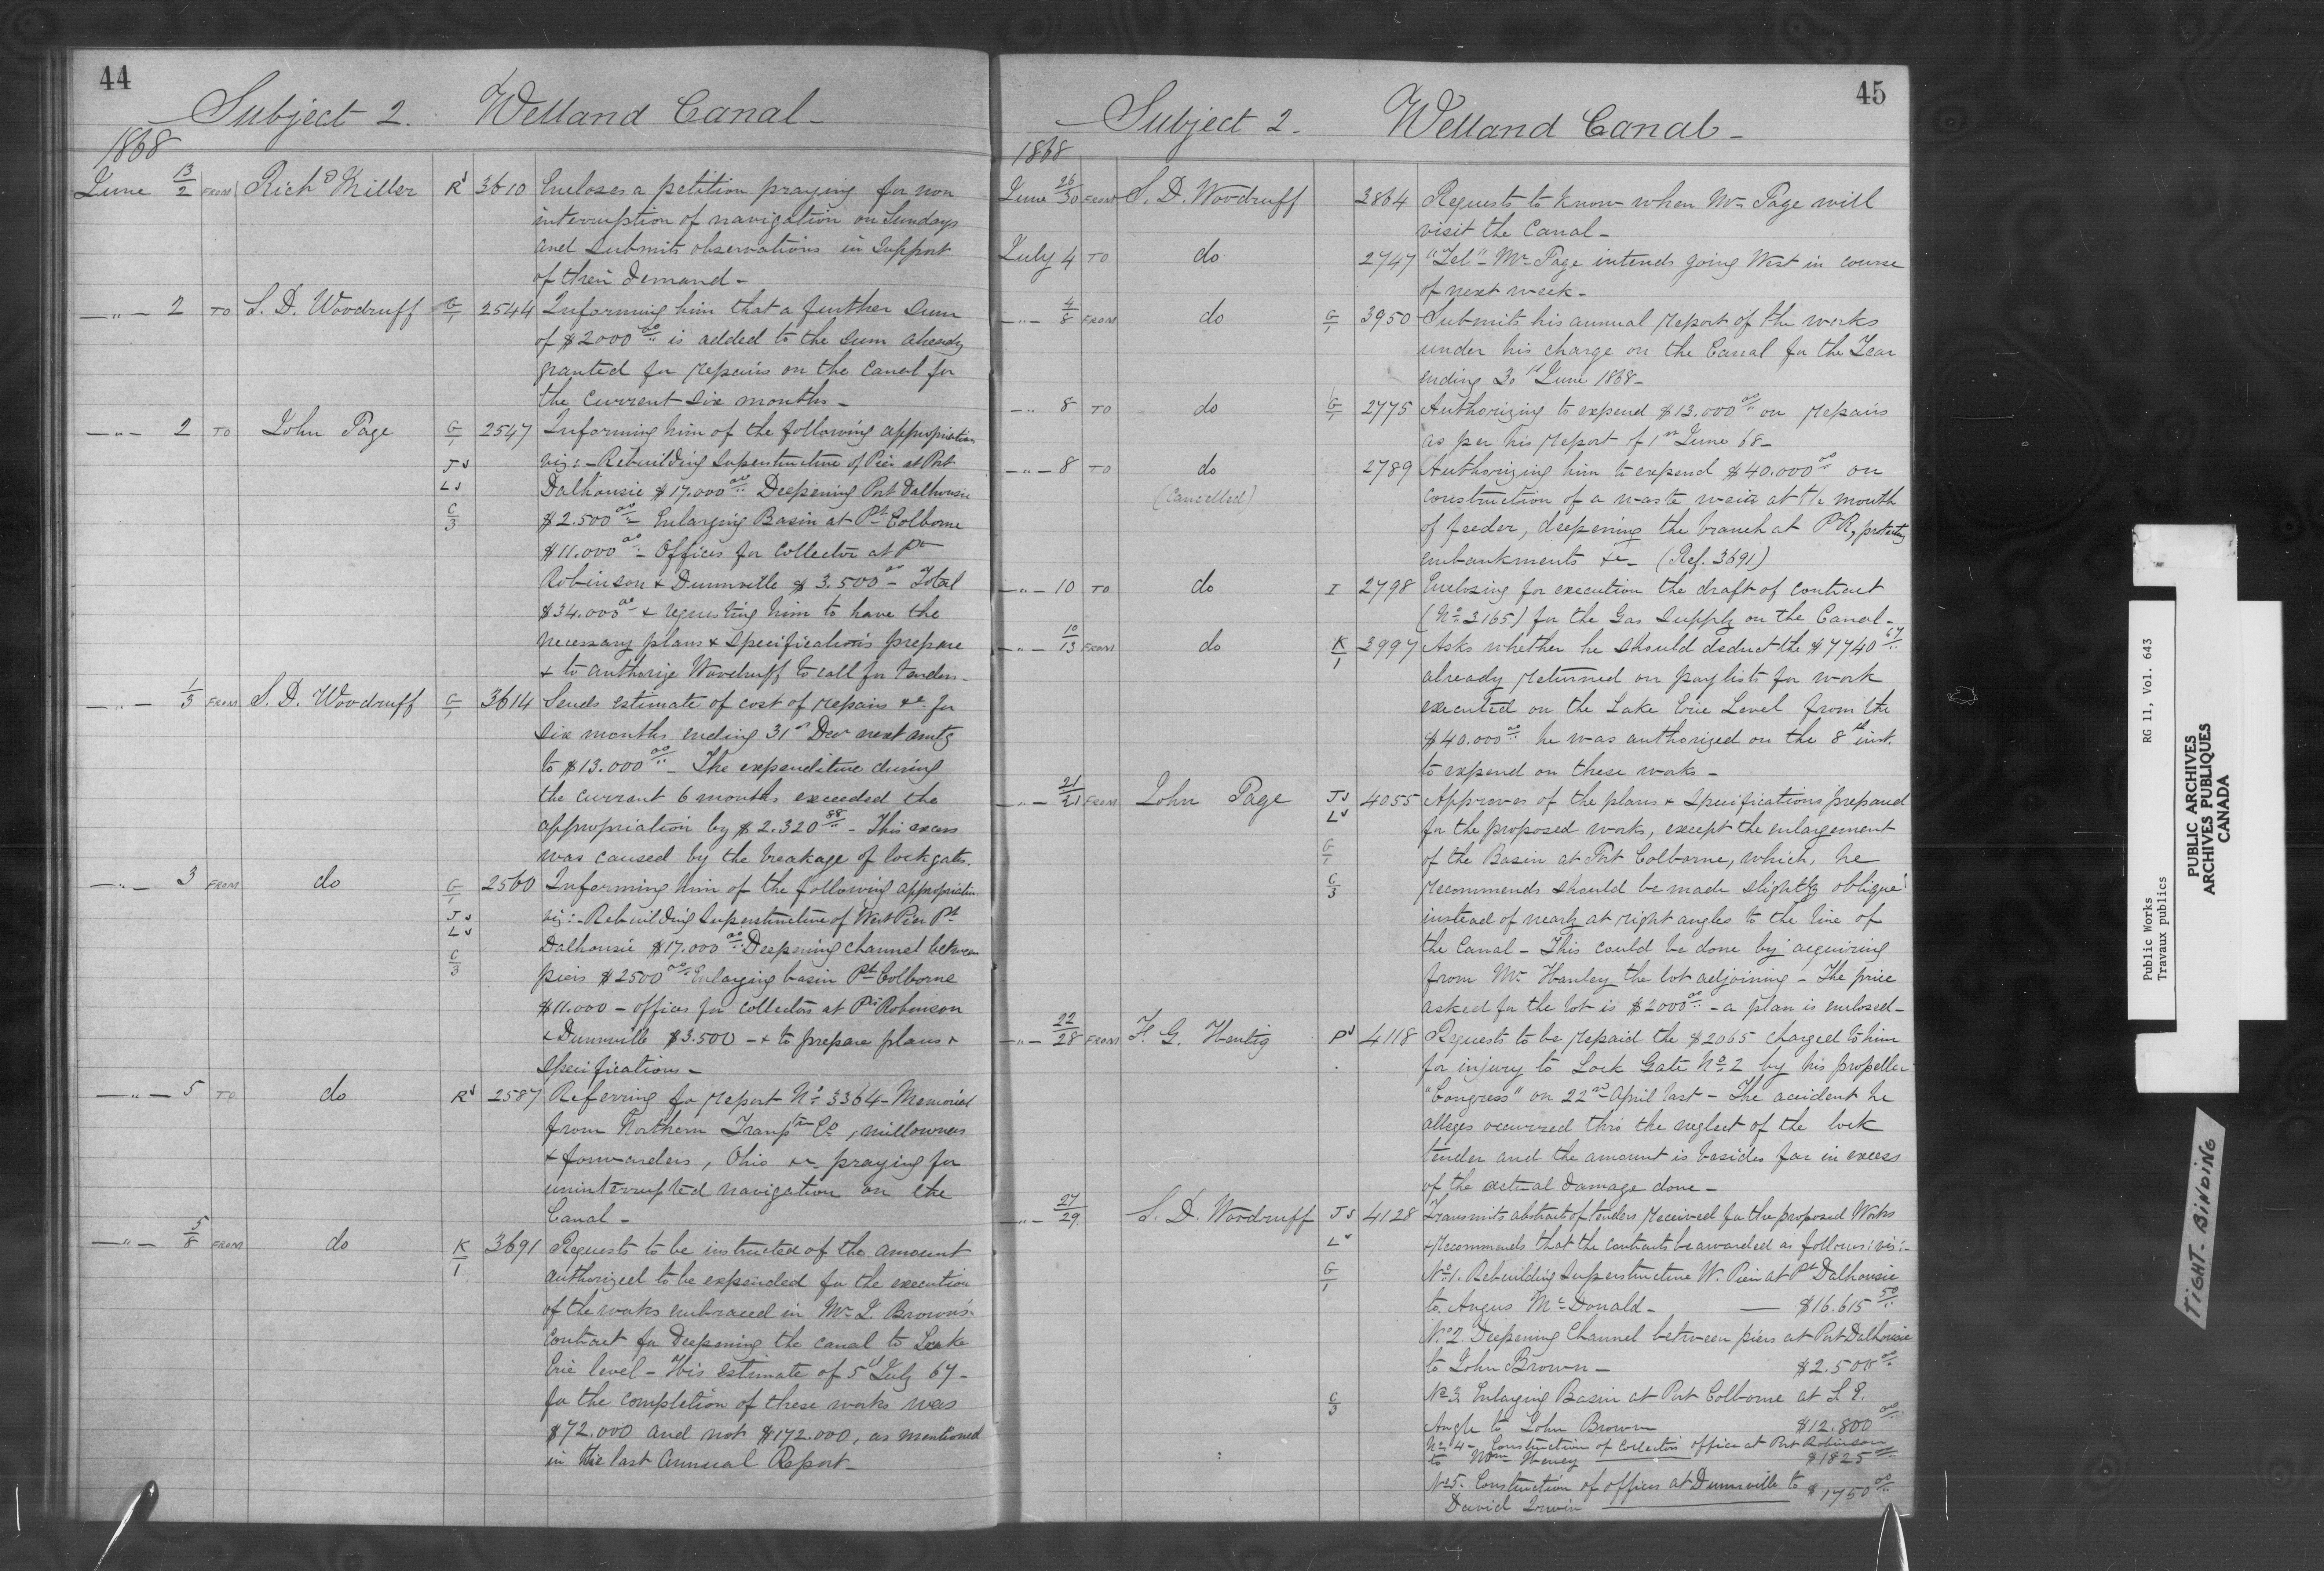 44
Subject 2. Welland Canal -
1868
June 13/2 FROM Richd Miller R 3610 Encloses a petition praying for non
interruption of navigation on Sundays
and submits observations in support
of their demand -
— " — 2 TO S. D. Woodruff G/1 2544 Informing him that a further sum
of $2000 00/.. is added to the sum already
granted for repairs on the canal for
the current six months -
— " — 2 TO John Page G/1 2547 Informing him of the following appropriation
J viz: - Rebuilding Superstructure of Pier at Port
L Dalhousie $17.000 00/.. Deepening Port Dalhousie
C/3 $2.500 00/.. - Enlarging Basin at Pt Colborne
$11.000 00/.. - Offices for Collector at Pt
Robinson & Dunnville $3.500 00 - Total
$34.000 00 & requesting him to have the
necessary plans & specifications prepare
& to authorize Woodruff to call for tenders -
— " — 1/3 FROM S. D. Woodruff G/1 3614 Sends estimate of cost of repairs &c for
six months ending 31st Decr next amtg
to $13.000 00/.. - The expenditure during
the current 6 months exceeded the
appropriation by $2.320 88/.. - This excess
was caused by the breakage of lock gates.
— " — 3 FROM do G/1 2560 Informing him of the following appropriation
J viz: - Rebuilding Superstructure of West Pier Pt
L Dalhousie $17.000 00/.. Deepening channel between
C/3 piers $2500 00/.. Enlarging basin Pt Colborne
$11.000 - offices for collectors at Pt Robinson
& Dunnville $3.500 - & to prepare plans &
Specifications -
— " — 5 TO do R 2587 Referring for report No 3364 - Memorial
from Northern Transptn Co, millowners
& forwarders, Ohio &c praying for
uninterrupted navigation on the
Canal -
— " — 5/8 FROM do K/1 3691 Requests to be instructed of the amount
authorized to be expended for the execution
of the works embraced in Mr J. Brown's
contract for Deepening the canal to Lake
Erie level - His estimate of 5th July 67 -
for the completion of these works was
$72.000 and not $172.000, as mentioned
in the last Annual Report -
45
Subject 2. Welland Canal -
1868
June 26/30 FROM S. D. Woodruff 3864 Requests to know when Mr Page will
visit the Canal -
July 4 TO do 2747 "Tel" - Mr Page intends going West in course
of next week -
— " — 4/8 FROM do G/1 3950 Submits his annual report of the works
under his charge on the Canal for the Year
ending 30th June 1868 -
— " — 8 TO do G/1 2775 Authorizing to expend $13.000 00/.. on repairs
as per his report of 1st June 68 -
— " — 8 TO do 2789 Authorizing him to expend $40.000 00/.. on
(Cancelled) construction of a waste weir at the mouth
of feeder, deepening the branch at Pt R, protecting
embankments &c - (Ref. 3691)
— " — 10 TO do I 2798 Enclosing for execution the draft of contract
(No 3165) for the Gas Supply on the Canal -
— " — 10/13 FROM do K/1 3997 Asks whether he should deduct the $7740 67/..
already returned on paylists for work
executed on the Lake Erie Level from the
$40.000 00/.. he was authorized on the 8th inst.
to expend on these works -
— " — 21/21 FROM John Page J 4055 Approves of the plans & specifications prepared
L for the proposed works, except the enlargement
G/1 of the Basin at Port Colborne, which, he
C/3 recommends should be made slightly oblique
instead of nearly at right angles to the line of
the Canal - This could be done by acquiring
from Mr Hanley the lot adjoining - The price
asked for the lot is $2000 00/.. - a plan is enclosed -
— " — 22/28 FROM F. G. Hentig P 4118 Requests to be repaid the $2065 charged to him
for injury to Lock Gate No 2 by his propeller
"Congress" on 22nd April last - The accident he
alleges occurred thro the neglect of the lock
tender and the amount is besides far in excess
of the actual damage done -
— " — 27/29 S. D. Woodruff J 4128 Transmits abstract of tenders received for the proposed Works
L & recommends that the contracts be awarded as follows: viz: -
G/1 No 1. Rebuilding Superstructure W. Pier at Pt Dalhousie
to Angus McDonald - — $16.615 50/..
No 2 Deepening Channel between piers at Port Dalhousie
to John Brown - $2.500 00/..
C/3 No 3 Enlarging Basin at Port Colborne at S E.
Angle to John Brown $12.800 00/..
No 4 - Construction of Collectors office at Port Robinson
to $1825 00/..
No 5. Construction of offices at Dunnville to $1750 00/..
David
Public Works RG 11, Vol. 643
Travaux publics
PUBLIC ARCHIVES
ARCHIVES PUBLIQUES
CANADA
TIGHT BINDING